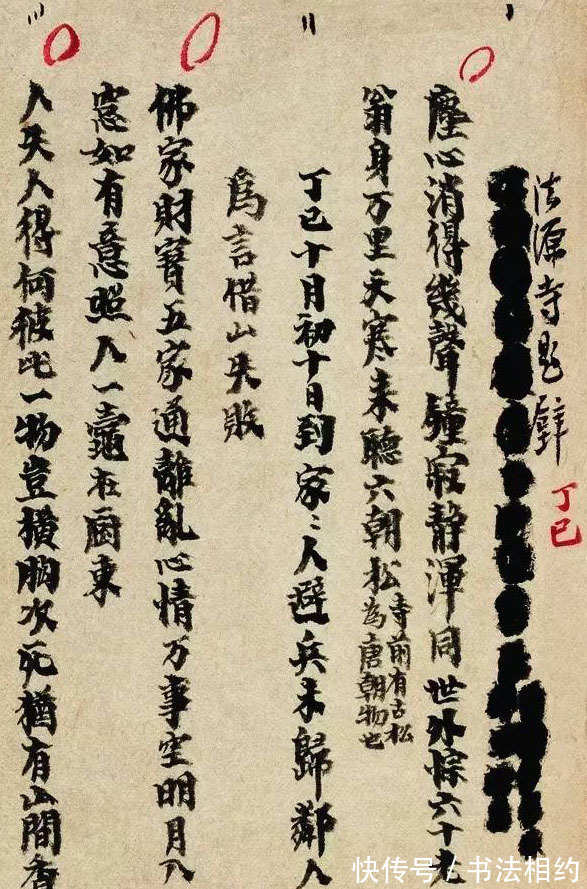 法源寺题壁
丁巳
塵心消得幾聲鐘寂静渾同世外悰六十
翁身万里天寒来聽六朝松
寺前有古松
為唐朝物也
丁巳十月初十日到家〻人避兵未歸鄰人
為言借山失敗
佛家財寶五家通離亂心情万事空明月入
窓如有意照人一竈在厨東
人失人得何彼此一物豈橫胸次死猶有山間香
快传号 / 书法相约